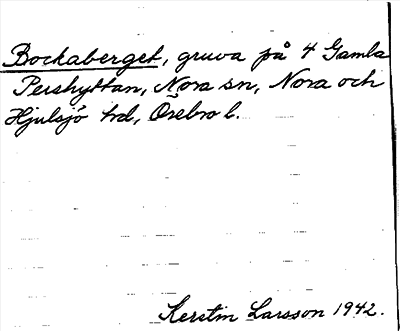 Bockaberget, gruva på 4 Gamla
Pershyttan, Nora sn, Nora och
Hjulsjö hd, Örebro l.
Kerstin Larsson 1942.